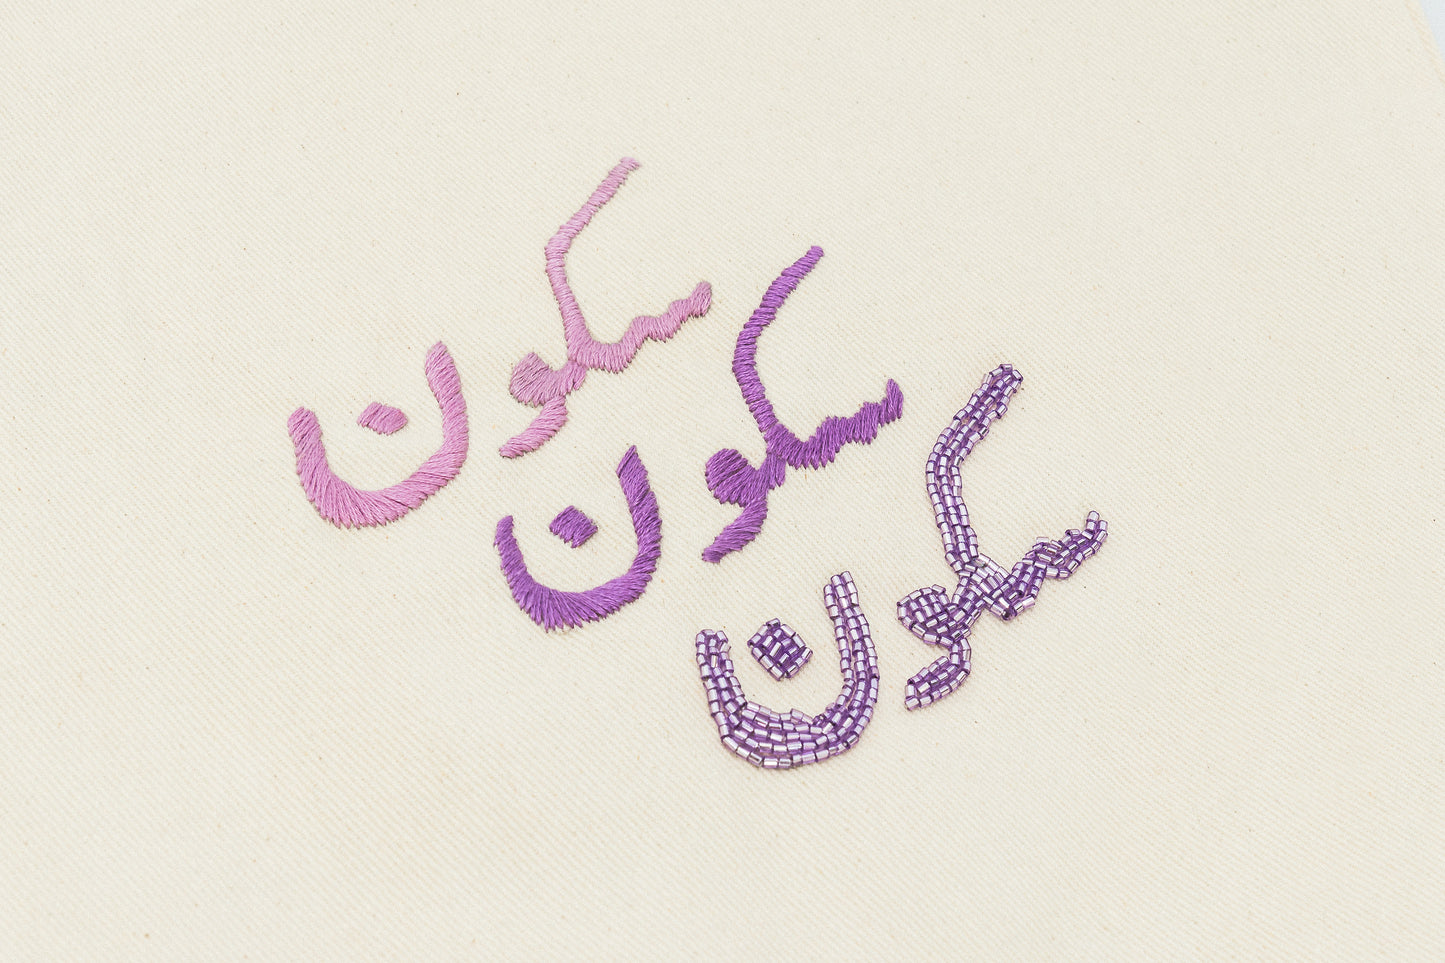 سكون
سكون
سكون